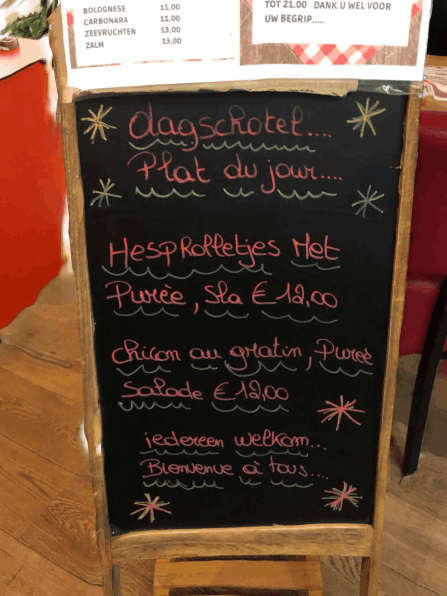 BOLOGNESE 11,00
CARBONARA 11,00
ZEEVRUCHTEN 13,00
ZALM 13,00
TOT 21.00 DANK U WEL VOOR
UW BEGRIP.....
dagschotel....
Plat du jour....
HespRolletjes Met
Purèe, Sla € 12,00
chicon au gratin, Pureè
Salade € 12,00
iedereen welkom...
Bienvenue à tous....